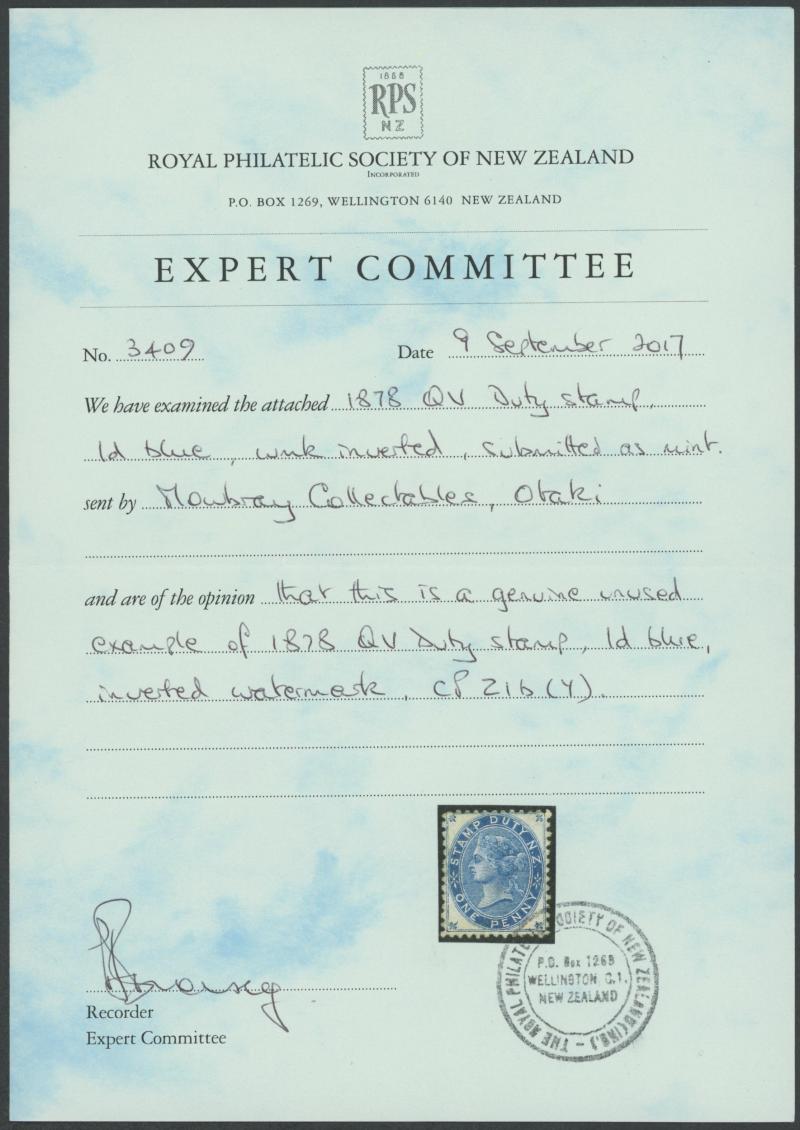 1888
RPS
NZ
ROYAL PHILATELIC SOCIETY OF NEW ZEALAND
INCORPORATED
P.O. BOX 1269, WELLINGTON 6140 NEW ZEALAND
EXPERT COMMITTEE
No. 3409 Date 9 September 2017
We have examined the attached 1878 QV Duty stamp,
1d blue, wmk inverted, submitted as mint.
sent by Mowbray Collectables, Otaki
and are of the opinion that this is a genuine unused
example of 1878 QV Duty stamp, 1d blue,
inverted watermark, CP Z1b(Y).
STAMP DUTY N.Z.
ONE PENNY
THE ROYAL PHILATELIC SOCIETY OF NEW ZEALAND (INC.)
P.O. Box 1269
WELLINGTON C.1.
NEW ZEALAND
Recorder
Expert Committee